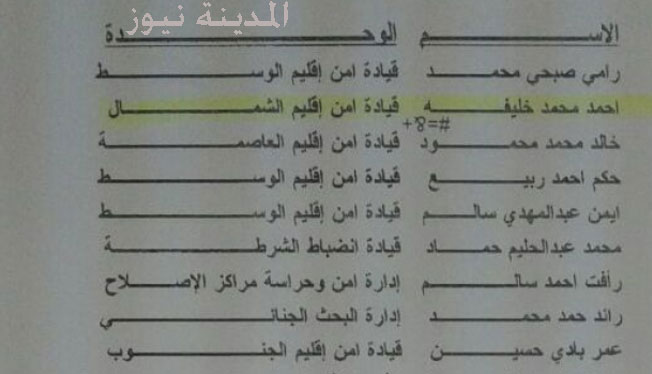 المدينة نيوز
الاســـم الوحـــدة
رامي صبحي محمـــد قيادة امن إقليم الوســـط
احمد محمد خليفـــه قيادة امن إقليم الشمـــال
#=8+
خالد محمد محمـــود قيادة امن إقليم العاصمـــة
حكم احمد ربيـــع قيادة امن إقليم الوســـط
ايمن عبدالمهدي سالـــم قيادة امن إقليم الوســـط
محمد عبدالحليم حمـــاد قيادة انضباط الشرطـــة
رأفت احمد سالـــم إدارة امن وحراسة مراكز الإصـــلاح
رائد حمد محمـــد إدارة البحث الجنائـــي
عمر بادي حسيـــن قيادة امن إقليم الجنـــوب